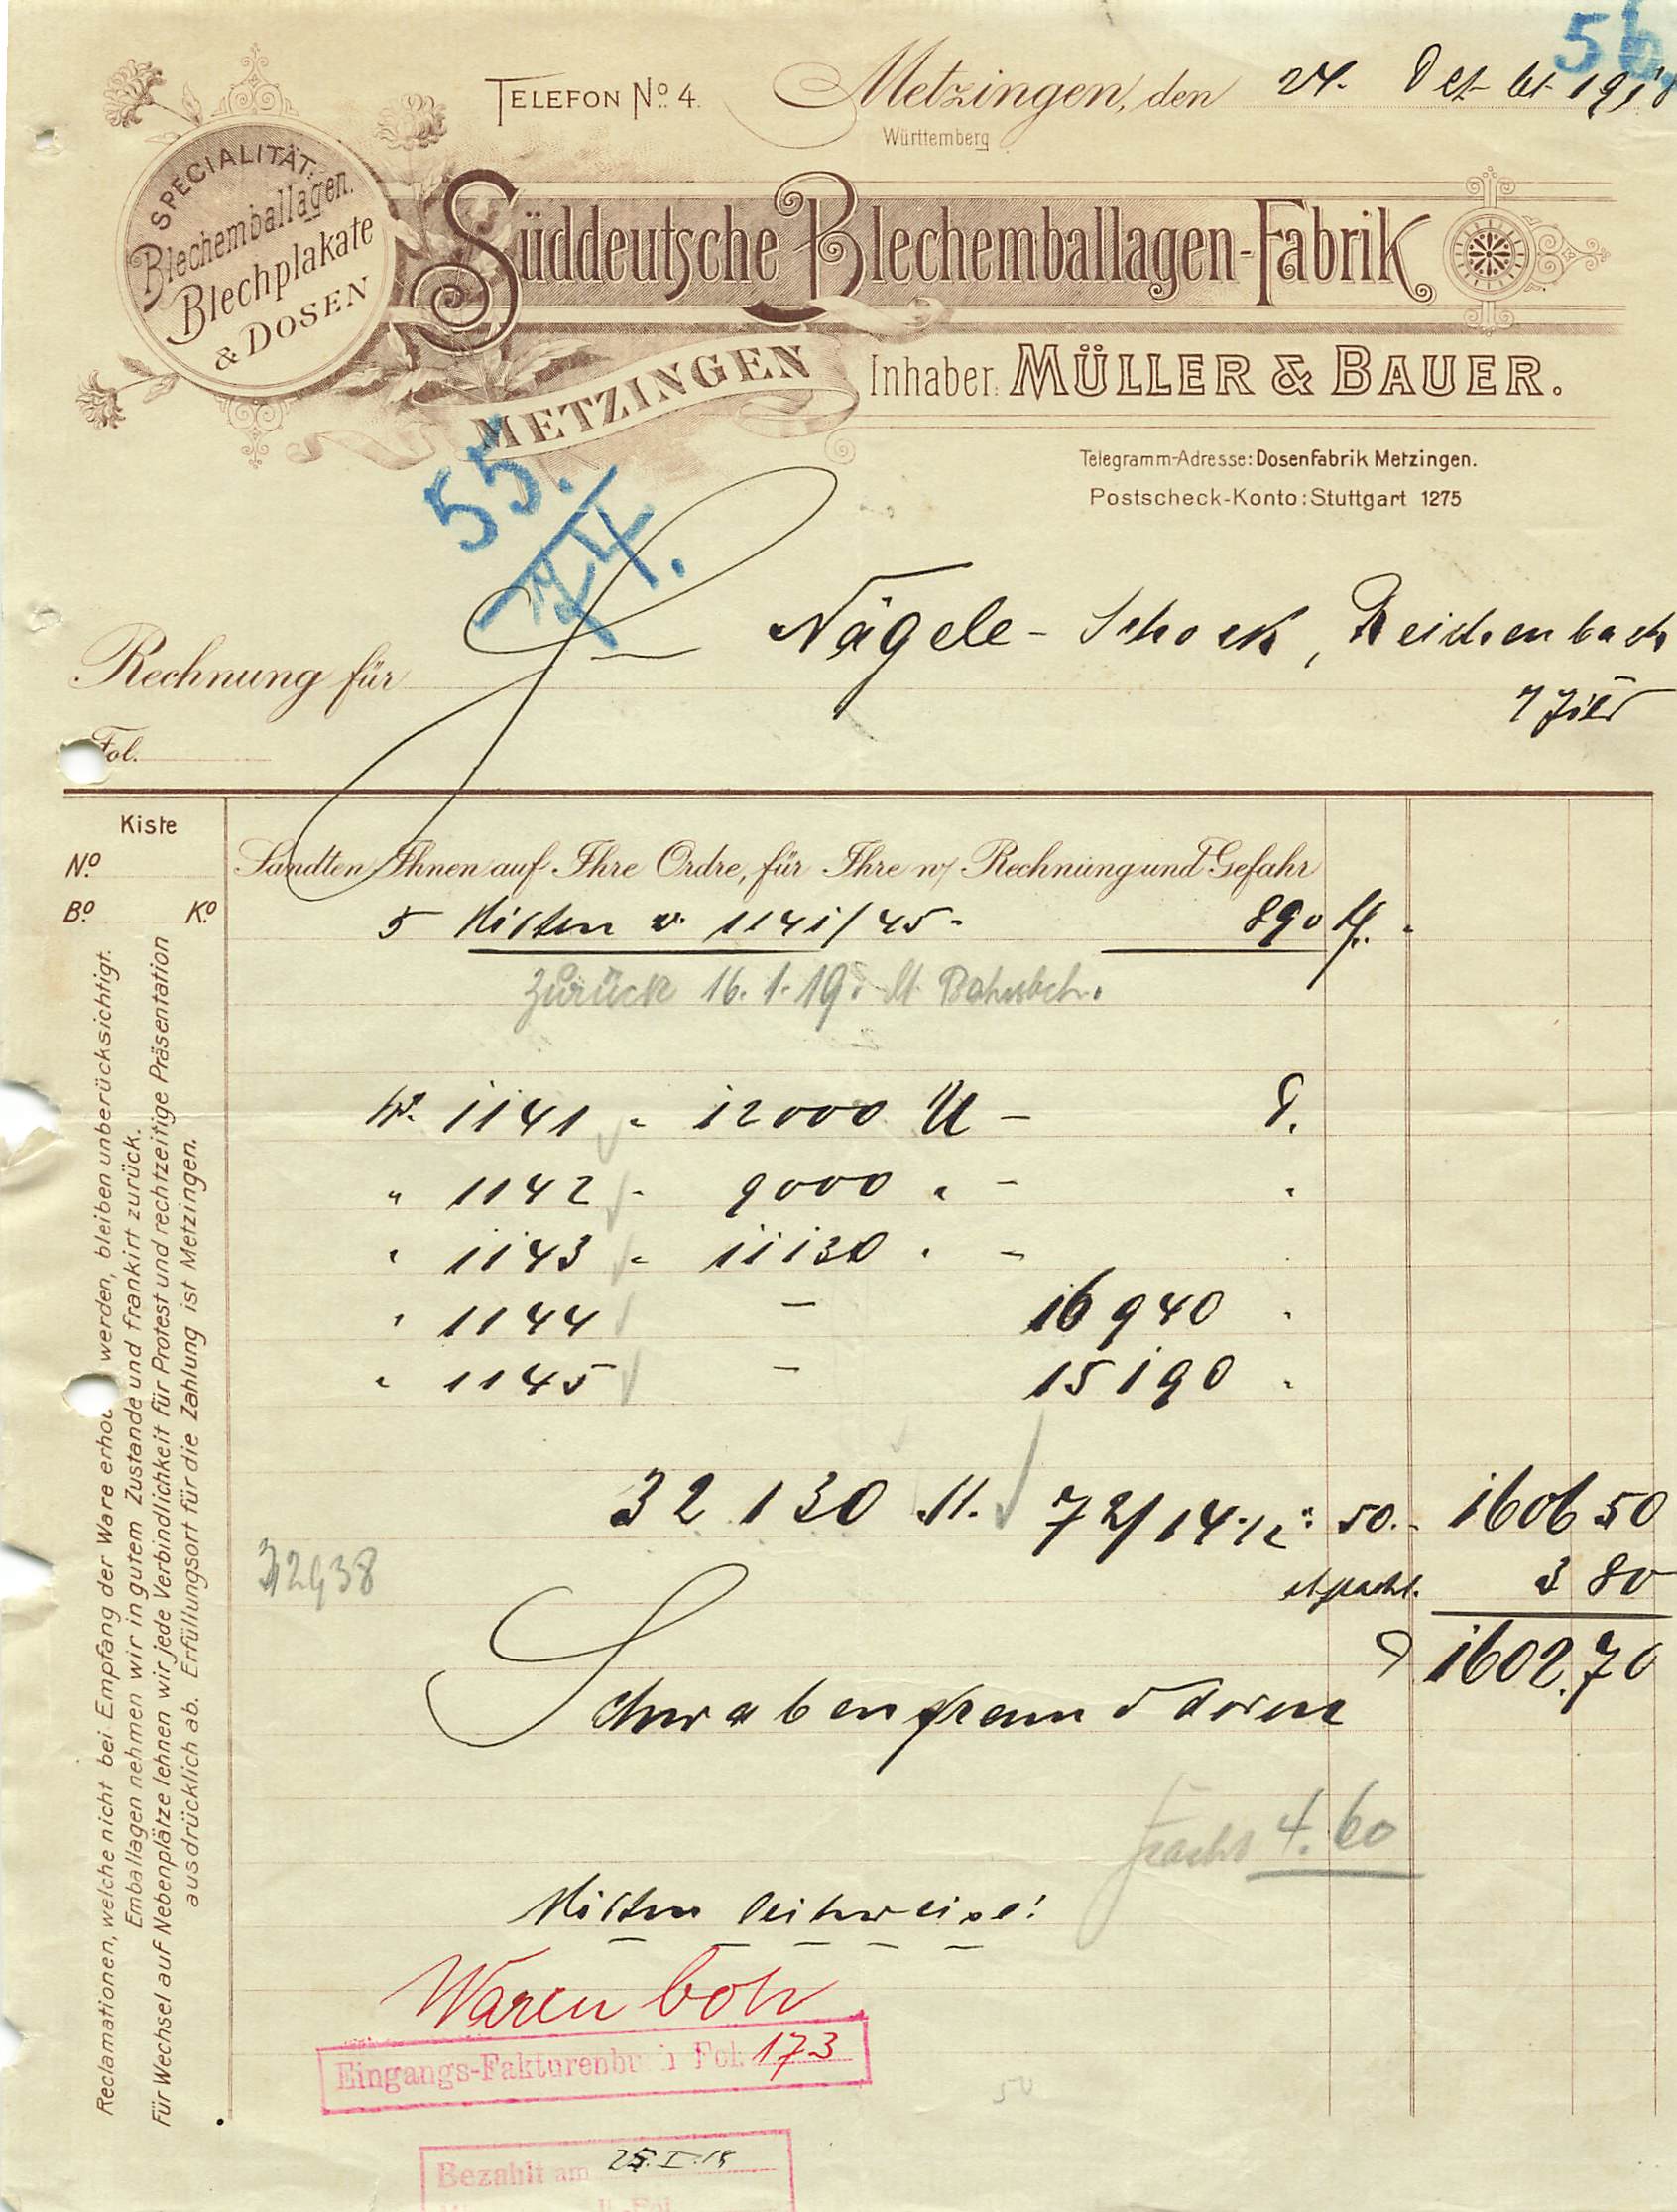 56.
TELEFON No. 4.
Metzingen, den 24. Dez. 1918
Württemberg
SPECIALITÄT:
Blechemballagen.
Blechplakate
& DOSEN
Süddeutsche Blechemballagen-Fabrik
METZINGEN
Inhaber: MÜLLER & BAUER.
Telegramm-Adresse: Dosenfabrik Metzingen.
Postscheck-Konto: Stuttgart 1275
55.
Rechnung für Nägele-Schock, Reichenbach
Fol.
Kiste
No.
Bo. Ko.
Sandten Ihnen auf Ihre Ordre, für Ihre w/ Rechnung und Gefahr
5 Kisten No. 1141/45- 890 K.
Zurück 16.1.19.
No. 1141 - 12000 U - D.
" 1142 - 9000 " - "
" 1143 - 11130 " -
" 1144 - 16940 "
" 1145 - 15190 "
32 130 St. 72/14 50.- 1606 50
3 80
1602.70
32938
Fracht 4.60
Kisten leihweise!
Waren
Eingangs-Fakturenbuch Fol. 173
Bezahlt am 25.I.19
Reclamationen, welche nicht bei Empfang der Ware erhoben werden, bleiben unberücksichtigt.
Emballagen nehmen wir in gutem Zustande und frankirt zurück.
Für Wechsel auf Nebenplätze lehnen wir jede Verbindlichkeit für Protest und rechtzeitige Präsentation
ausdrücklich ab. Erfüllungsort für die Zahlung ist Metzingen.